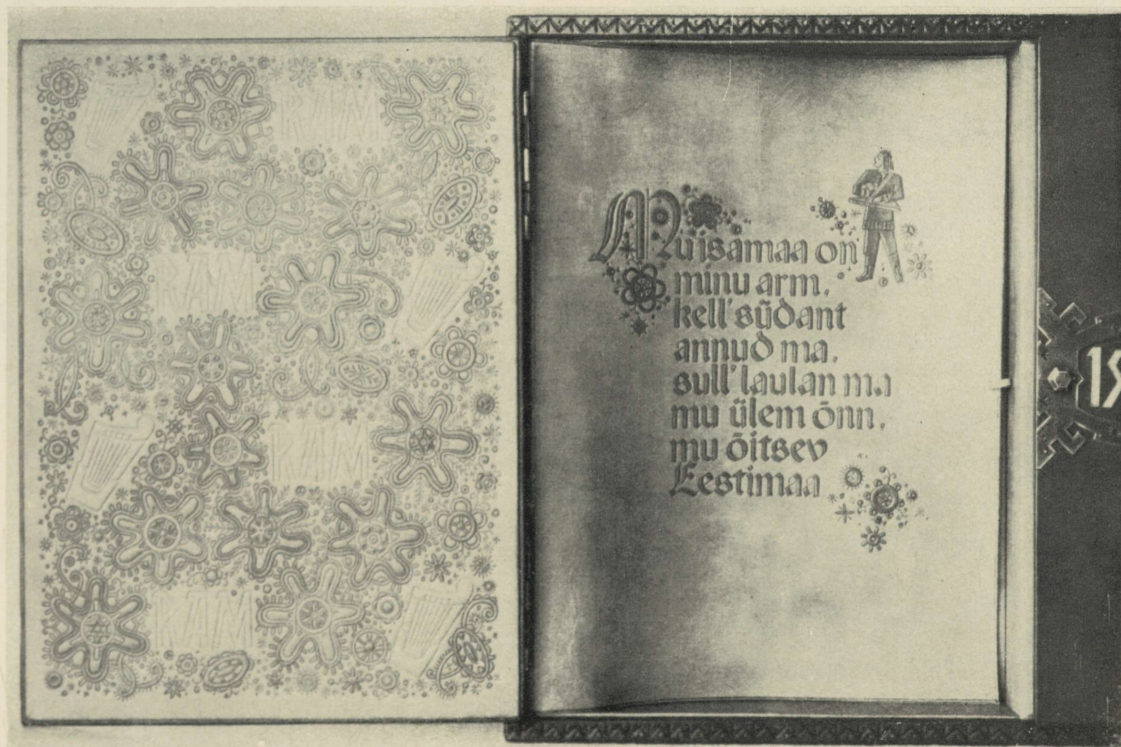 RAM
RAM
RAM
RAM
Mu isamaa on
minu arm,
kell' südant
annud ma,
sull' laulan ma
mu ülem õnn,
mu õitsev
Eestimaa